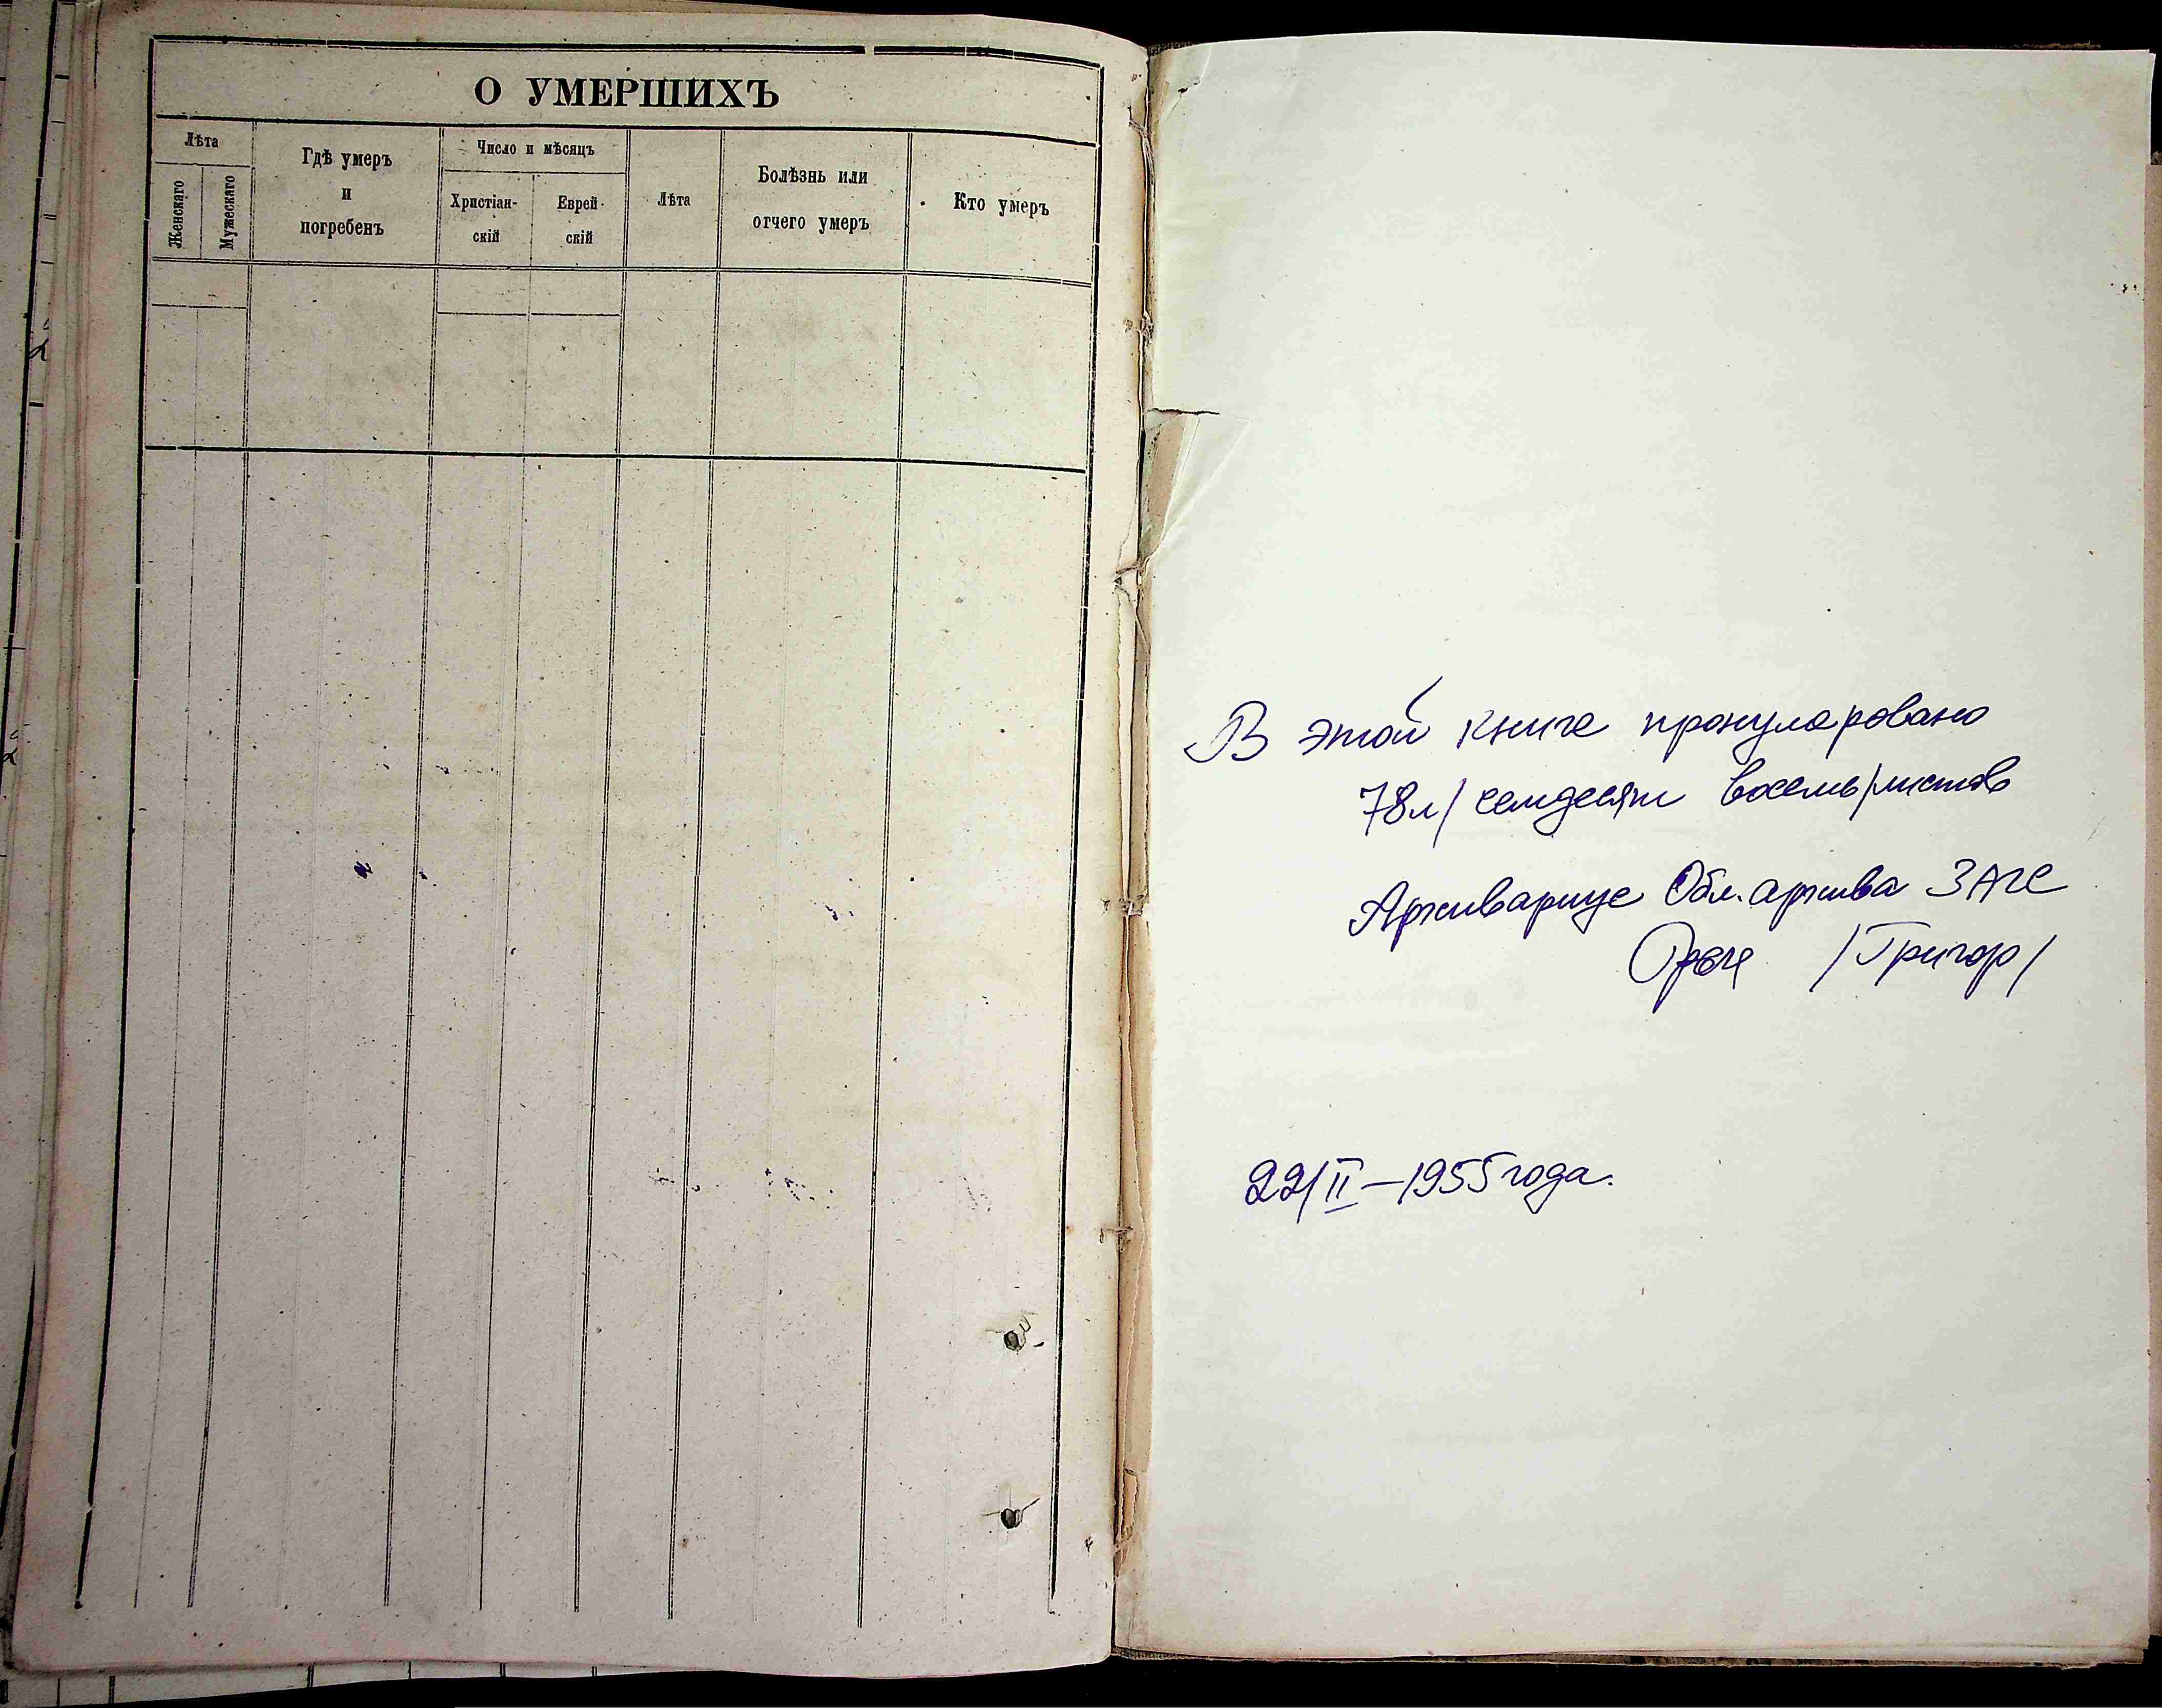 О УМЕРШИХЪ
Лѣта
Женскаго
Мужескаго
Гдѣ умеръ
и
погребенъ
Число и мѣсяцъ
Христіан-
скій
Еврей-
скій
Лѣта
Болѣзнь или
отчего умеръ
Кто умеръ
В этой книге пронумеровано
78л/ семдесят восемь/листов
Архивариус Обл. архива ЗАГС
/Григор/
22/II – 1955 года.